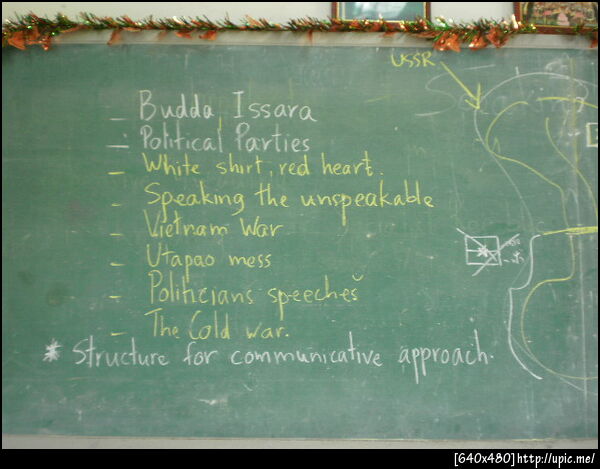 USSR
- Budda Issara
- Political Parties
- White shirt, red heart.
- Speaking the unspeakable
- Vietnam War
- Utapao mess
- Politicians speeches
- The Cold war.
* Structure for communicative approach.
[640x480]http://upic.me/